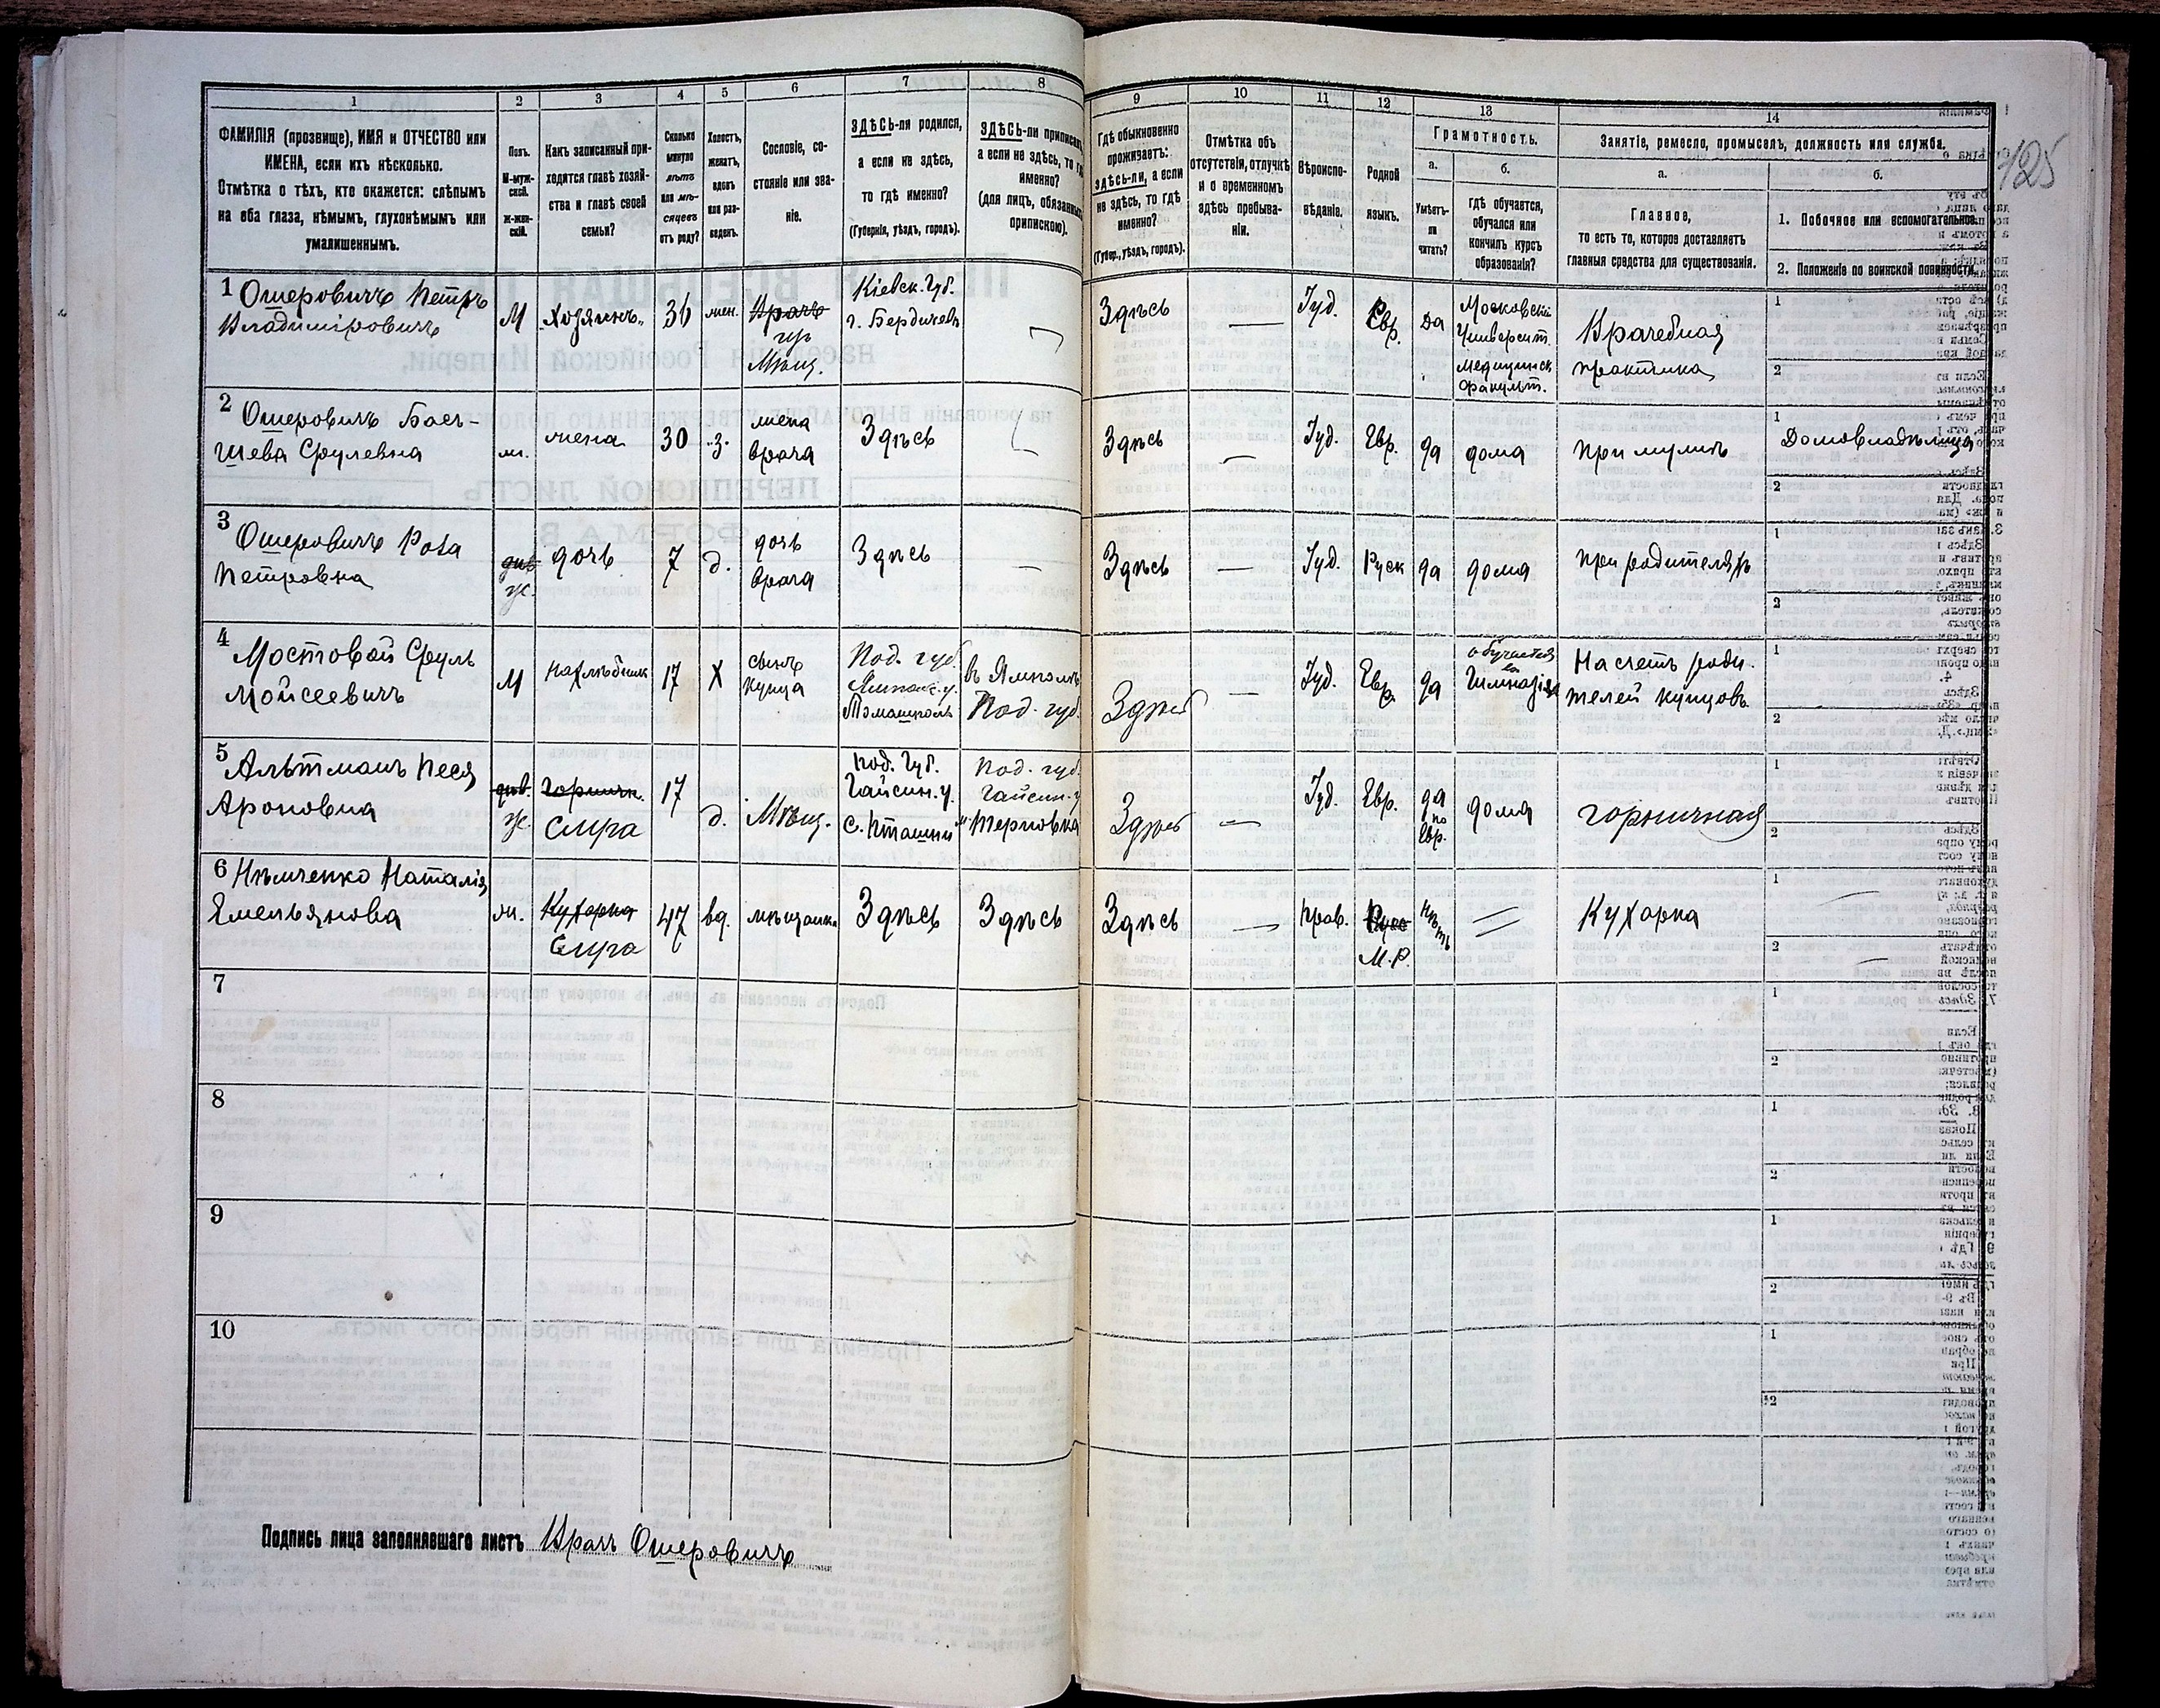 1 2 3 4 5 6 7 8 9 10 11 12 13 14
ФАМИЛІЯ (прозвище), ИМЯ и ОТЧЕСТВО или
ИМЕНА, если ихъ нѣсколько.
Отмѣтка о тѣхъ, кто окажется: слѣпымъ
на оба глаза, нѣмымъ, глухонѣмымъ или
умалишеннымъ.
Полъ.
М-муж-
ской.
Ж-жен-
скій.
Какъ записанный при-
ходится главѣ хозяй-
ства и главѣ своей
семьи?
Сколько
минуло
лѣтъ
или мѣ-
сяцевъ
отъ роду?
Холостъ,
женатъ,
вдовъ
или раз-
веденъ.
Сословіе, со-
стояніе или зва-
ніе.
ЗДѢСЬ-ли родился,
а если не здѣсь,
то гдѣ именно?
(Губернія, уѣздъ, городъ).
ЗДѢСЬ-ли приписанъ,
а если не здѣсь, то гдѣ
именно?
(для лицъ, обязанныхъ
припискою).
Гдѣ обыкновенно
проживаетъ:
ЗДѢСЬ-ли, а если
не здѣсь, то гдѣ
именно?
(Губер., уѣздъ, городъ).
Отмѣтка объ
отсутствіи, отлучкѣ
и о временномъ
здѣсь пребыва-
ніи.
Вѣроиспо-
вѣданіе.
Родной
языкъ.
Грамотность.
а.
Умѣетъ-
ли
читать?
б.
гдѣ обучается,
обучался или
кончилъ курсъ
образованія?
Занятіе, ремесло, промыселъ, должность или служба.
а.
Главное,
то есть то, которое доставляетъ
главныя средства для существованія.
б.
1. Побочное или вспомогательное.
2. Положеніе по воинской повинности.
125
1 Ошеровичъ Петръ
Владиміровичъ
М
Хозяинъ
36
жен.
Врачъ
Мѣщ.
Кіевск. Губ.
г. Бердичевъ
Здѣсь
—
Іуд.
Евр.
Да
Московскій
Университ.
Медицинск.
Факульт.
Врачебная
практика
1
2
2 Ошеровичъ Баст-
Шева Срулевна
ж.
жена
30
з.
жена
врача
Здѣсь
Здѣсь
—
Іуд.
Евр.
да
дома
При мужѣ
1
Домовладѣлица
2
3 Ошеровичъ Роза
Петровна
ж.
дочь
7
д.
дочь
врача
Здѣсь
—
Здѣсь
—
Іуд.
Руск
да
дома
При родителяхъ
1
2
4 Мостовой Сруль
Мойсеевичъ
М
Нахлѣбник
17
Х
сынъ
купца
Под. губ.
Ямпол. у.
Томашполь
въ Ямполѣ
Под. губ.
Здѣсь
—
Іуд.
Евр.
да
обучается
въ
Гимназіи
На счетъ роди-
телей купцовъ
1
2
5 Альтманъ Песя
Ароновна
ж.
Горничн.
Слуга
17
д.
Мѣщ.
Под. Губ.
Гайсин. у.
с. Кташки
Под. губ.
Гайсин. у
м. Терновка
Здѣсь
—
Іуд.
Евр.
да
по
Евр.
дома
горничная
1
2
6 Нѣмченко Наталія
Емельянова
ж.
Кухарка
Слуга
47
вд.
мѣщанка
Здѣсь
Здѣсь
Здѣсь
—
Прав.
Руск
М.Р.
Нѣтъ
Кухарка
1
2
7
1
2
8
1
2
9
1
2
10
1
2
Подпись лица заполнявшаго листъ Врачъ Ошеровичъ